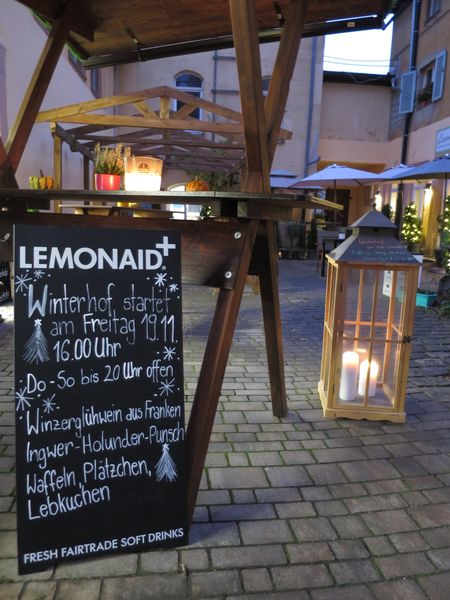 LEMONAID+
Winterhof startet
am Freitag 19.11.
16.00 Uhr
Do-So bis 20 Uhr offen
Winzerglühwein aus Franken
Ingwer-Holunder-Punsch
Waffeln, Plätzchen,
Lebkuchen
FRESH FAIRTRADE SOFT DRINKS